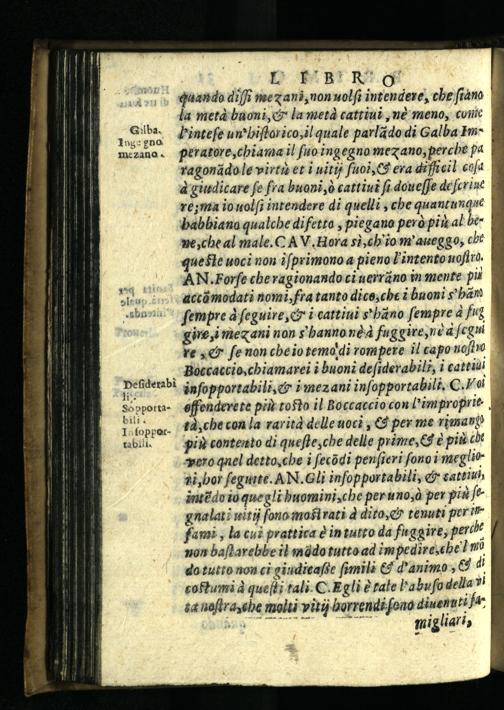 LIBRO
quando dissi mezani, non volsi intendere, che siano
la metà buoni, & la metà cattiui, nè meno, come
Galba.
Ingegno
mezano.
l'intese un'historico, il quale parlādo di Galba Im-
peratore, chiama il suo ingegno mezano, perche pa
ragonādo le virtù et i uitij suoi, & era difficil cosa
à giudicare se fra buoni, ò cattiui si douesse descriue
re; ma io uolsi intendere di quelli, che quantunque
habbiano qualche difetto, piegano però più al be-
ne, che al male. CAV. Hora sì, ch'io m'aueggo, che
queste uoci non isprimono a pieno l'intento uostro.
AN. Forse che ragionando ci uerrāno in mente più
accōmodati nomi, fra tanto dico, che i buoni s'hāno
sempre à seguire, & i cattiui s'hāno sempre à fug
gire, i mezani non s'hanno nè à fuggire, nè à segui
re, & se non che io temo di rompere il capo uostro
Boccaccio, chiamarei i buoni desiderabili, i cattiui
Desiderabi
li.
Sopporta-
bili.
Insoppor-
tabili.
insopportabili, & i mezani insopportabili. C. Voi
offenderete più tosto il Boccaccio con l'improprie-
tà, che con la rarità delle uoci, & per me rimango
più contento di queste, che delle prime, & è più che
vero quel detto, che i secōdi pensieri sono i meglio-
ri, hor seguite. AN. Gli insopportabili, & cattiui,
intēdo io quegli huomini, che per uno, ò per più se-
gnalati uitij sono mostrati à dito, & tenuti per in-
fami, la cui prattica è in tutto da fuggire, perche
non bastarebbe il mōdo tutto ad impedire, che'l mō
do tutto non ci giudicasse simili & d'animo, & di
costumi à questi tali. C. Egli è tale l'abuso della vi
ta nostra, che molti vitij horrendi sono diuenuti fa-
migliari,